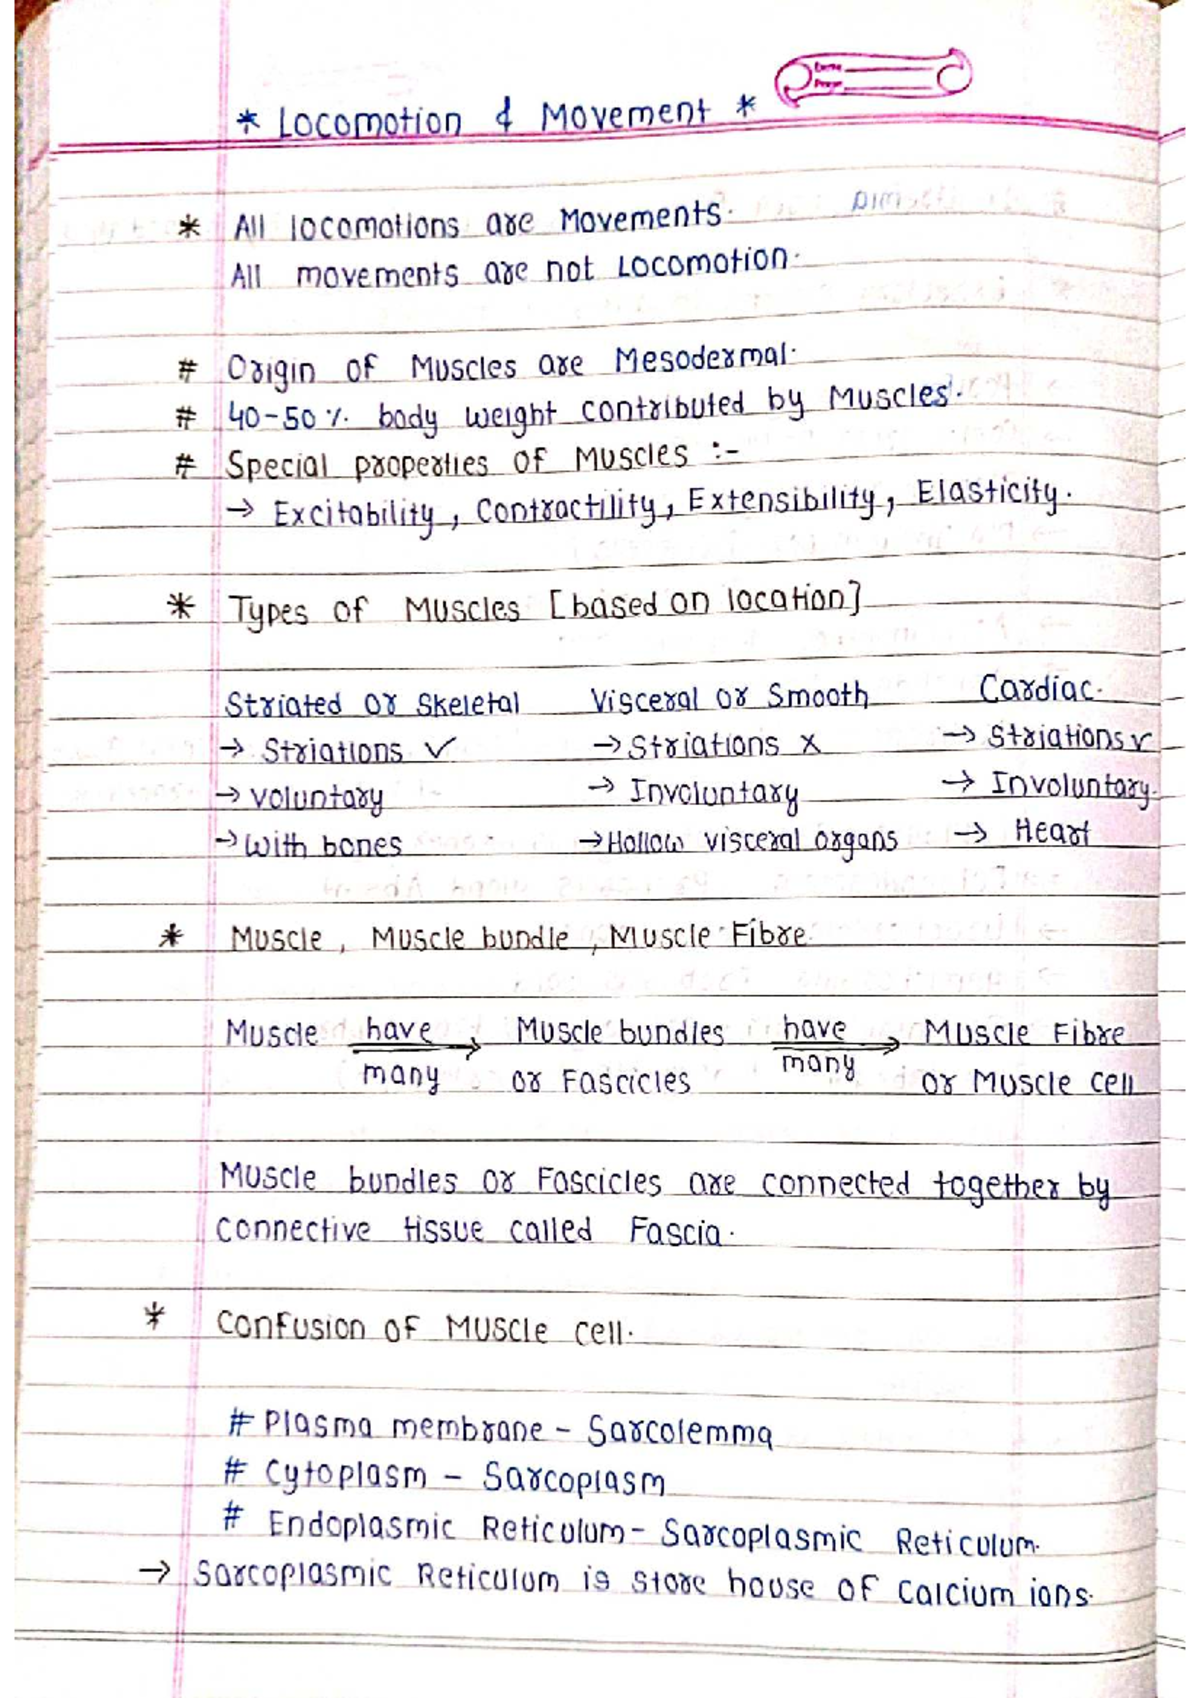 * Locomotion & Movement *
* All locomotions are Movements.
All movements are not Locomotion.
# Origin of Muscles are Mesodermal.
# 40-50 % body weight contributed by Muscles.
# Special properties of Muscles :-
→ Excitability, Contractility, Extensibility, Elasticity.
* Types of Muscles [based on location]
Striated or Skeletal Visceral or Smooth Cardiac.
→ Striations ✓ → Striations x → Striations ✓
→ voluntary → Involuntary → Involuntary.
→ With bones → Hollow visceral organs → Heart
* Muscle, Muscle bundle, Muscle Fibre.
Muscle have many → Muscle bundles have many → Muscle Fibre
or Fascicles or Muscle cell
Muscle bundles or Fascicles are connected together by
connective tissue called Fascia.
* Confusion of Muscle cell.
# Plasma membrane - Sarcolemma
# Cytoplasm - Sarcoplasm
# Endoplasmic Reticulum - Sarcoplasmic Reticulum.
→ Sarcoplasmic Reticulum is store house of calcium ions.